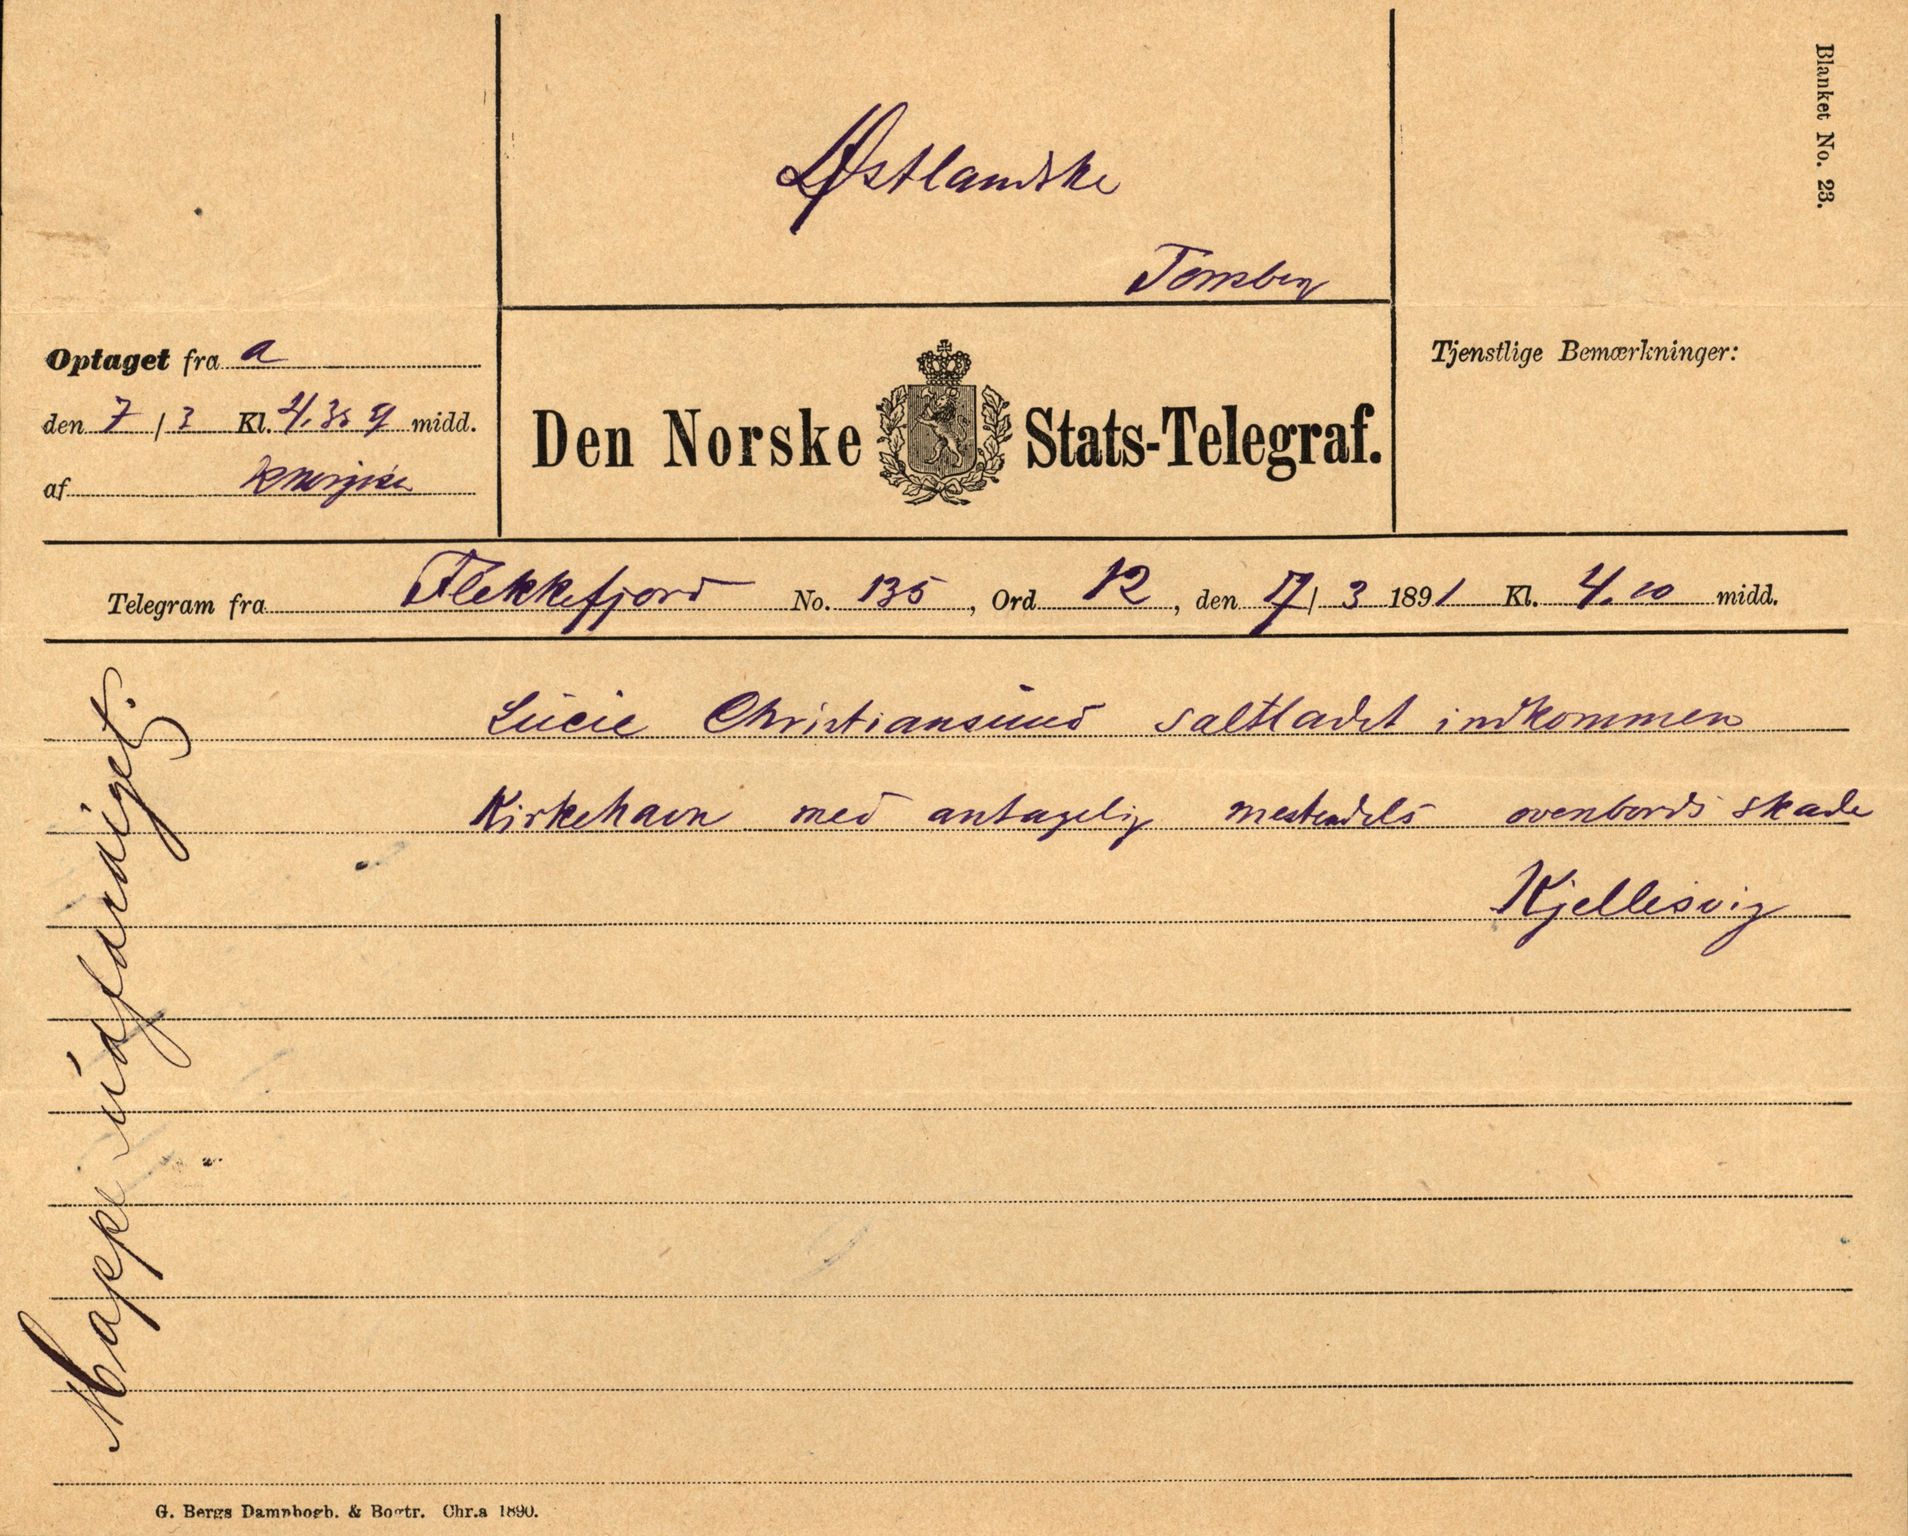 Blanket No. 23.
Østlandske
Tonsberg
Optaget fra a
den 7/3 Kl. 4.35 midd.
af
Den Norske Stats-Telegraf.
Tjenstlige Bemærkninger:
Telegram fra Flekkefjord No. 135, Ord 12, den 7/3 1891 Kl. 4.10 midd.
Lucie Christiansund saltladet indkommen
Kirkehavn med antagelig mestendels ovenbords skade
Kjellesvig
Mappe udfærdiget.
G. Bergs Dampbogb. & Bogtr. Chr.a 1890.